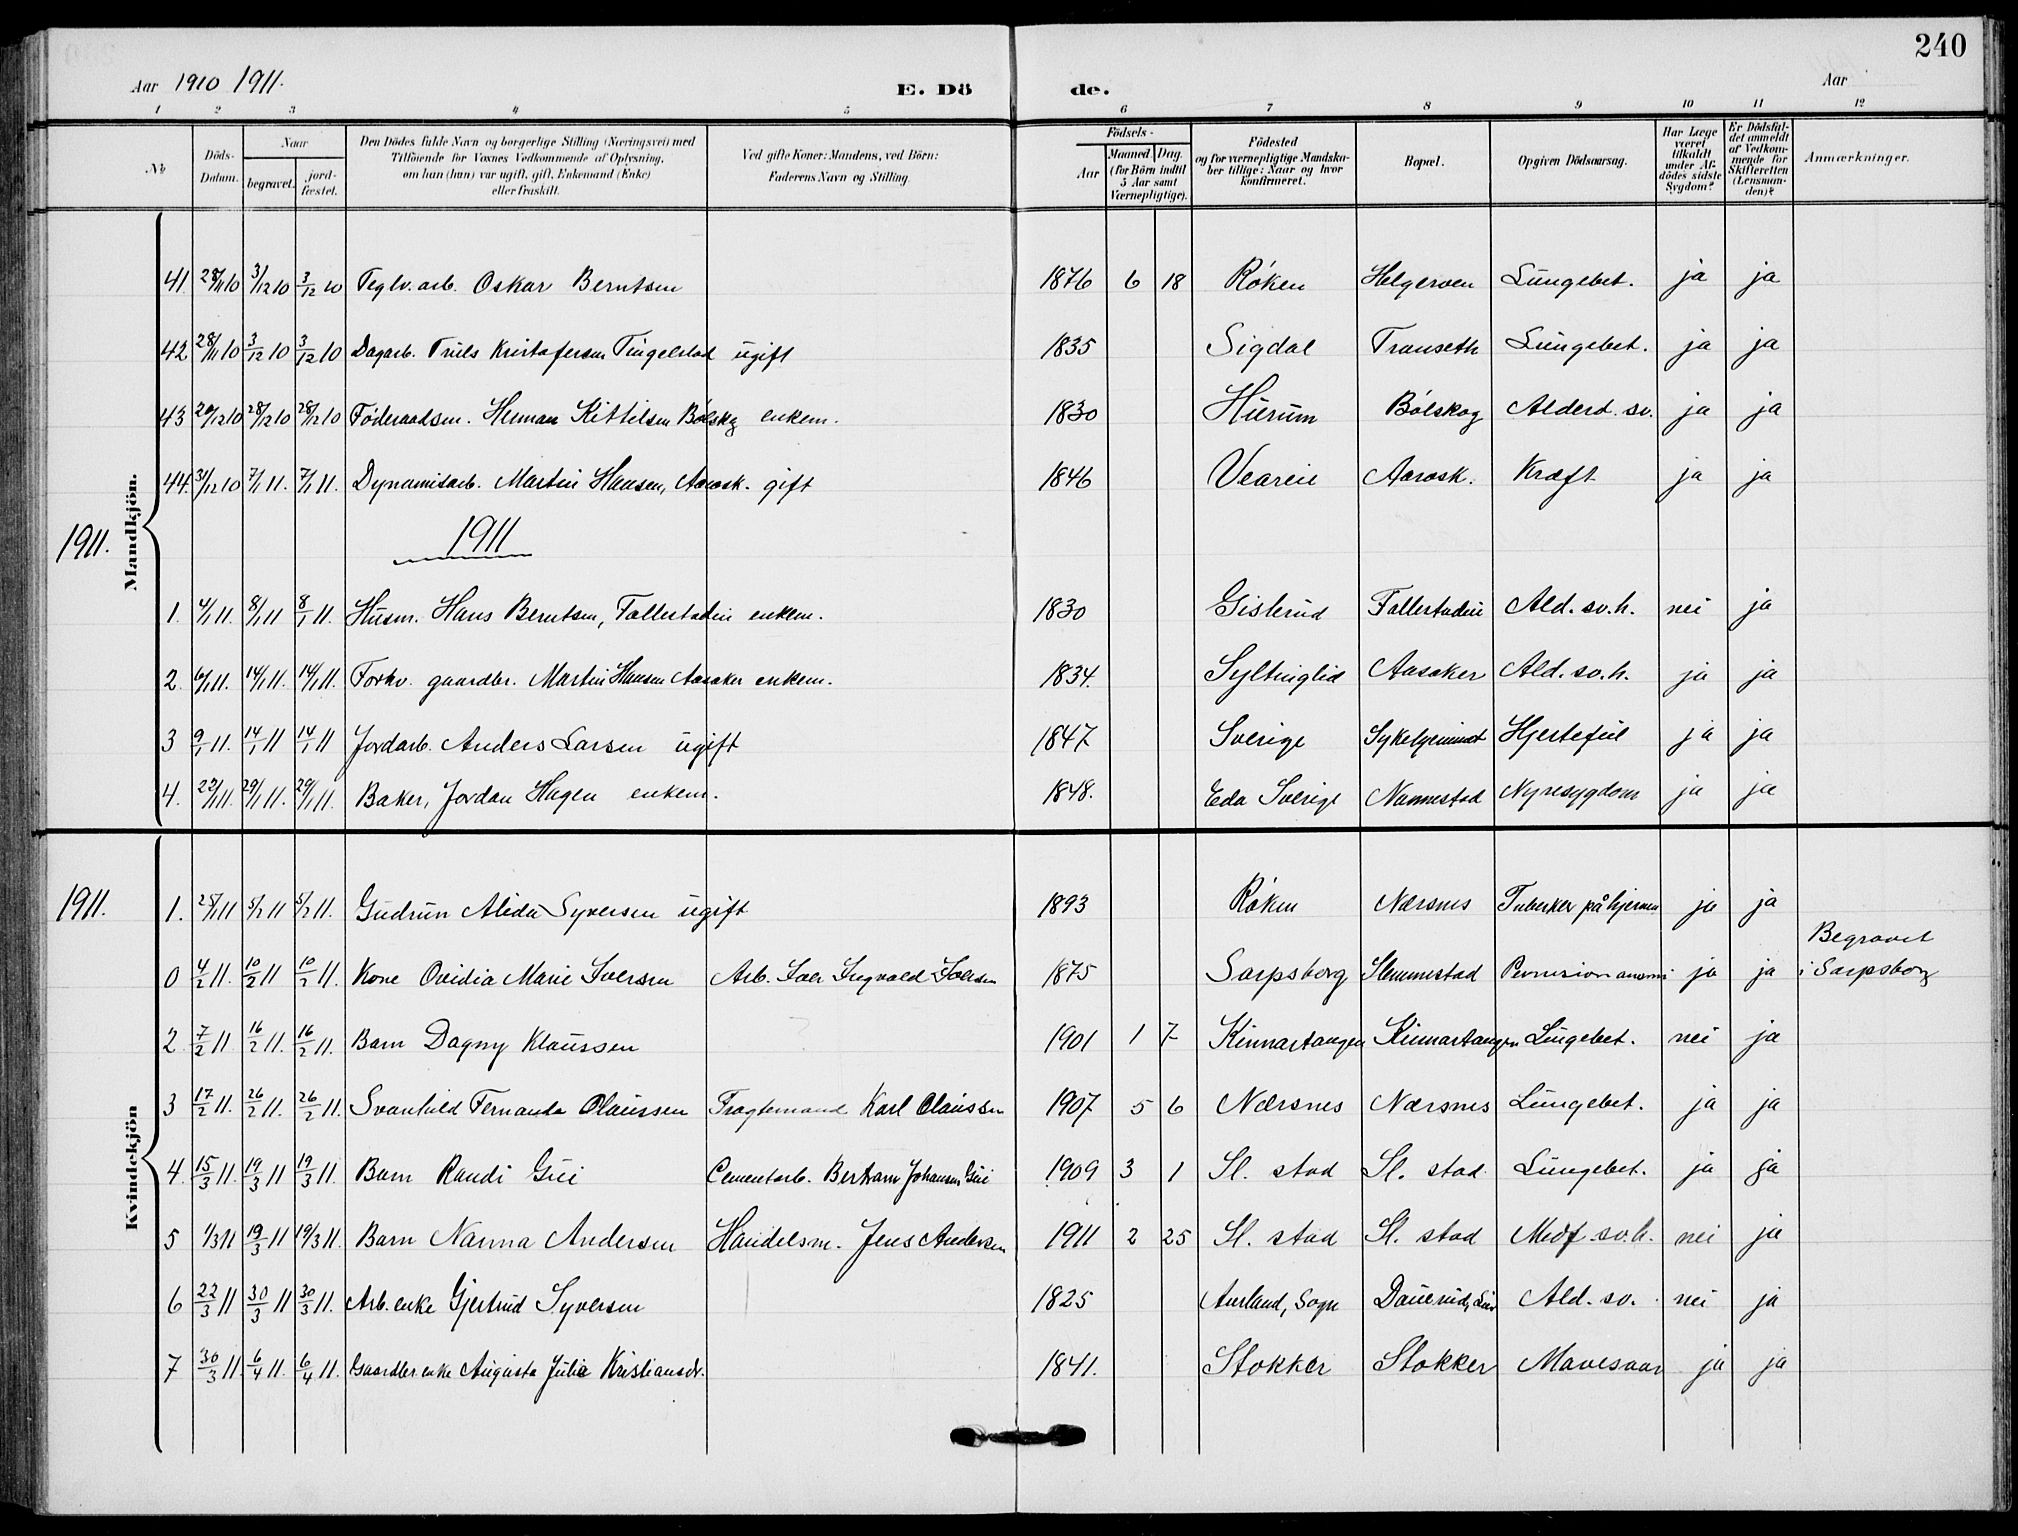 240
Aar 1910 1911.
E. Dö de.
Aar
1 2 3 4 5 6 7 8 9 10 11 12
No
Döds-Datum.
Naar
begravet.
jord-fæstet.
Den Dödes fulde Navn og borgerlige Stilling (Næringsvei) med
Tilföiende for Voxnes Vedkommende af Oplysning,
om han (hun) var ugift, gift, Enkemand (Enke)
eller fraskilt.
Ved gifte Koner: Mandens, ved Börn:
Faderens Navn og Stilling.
Födsels-
Aar
Maaned Dag
(for Börn indtil
5 Aar samt
Værnepligtige).
Födested
og for værnepligtige Mandska-
ber tillige: Naar og hvor
konfirmeret.
Bopæl.
Opgiven Dödsaarsag.
Har Læge
været
tilkaldt
under Af-
dödes sidste
Sygdom?
Er Dödsfal-
det anmeldt
af Vedkom-
mende for
Skifteretten
(Lensman-
den)?
Anmærkninger.
Mandkjön.
41. 28/11 10 3/12 10 3/12 10 Teglv. arb. Oskar Berntsen 1876 6 18 Røken Helgerven Lungebet. ja ja
42 28/11 10 3/12 10 3/12 10 Dagarb. Truls Kristofersen Tingelstad ugift 1835 Sigdal Transeth Lungebet. ja ja
43 20/12 10 28/12 10 28/12 10 Føderaadsm. Herman Kittilsen Bølskog enkem. 1830 Hurum Bølskog Alderd. sv. ja ja
44. 31/12 10 7/1 11. 7/1 11. Dynamitarb. Martin Hansen, Aarosk. gift 1846 Aarosk. Kræft ja ja
1911.
1911
1. 4/1 11. 8/1 11 8/1 11. Husm. Hans Berntsen, Fallestadeie enkem. 1830 Gislerud Fallestadeie Ald. sv. h. nei ja
2. 6/1 11. 14/1 11. 14/1 11. Forhv. gaardbr. Martin Hansen Aasaker enkem. 1834. Syltinglid Aasaker Ald. sv. h. ja ja
3 9/1 11. 14/1 11 14/1 11 Jordarb. Anders Larsen ugift 1847 Sverige Sykehjemmet Hjertefeil ja ja
4. 22/1 11. 29/1 11. 29/1 11. Baker, Jordan Hagen enkem. 1848. Eda Sverige Nannestad Nyresygdom ja ja
Kvindekjön
1911.
1. 25/1 11 5/2 11 5/2 11. Gudrun Alida Syversen ugift 1893 Røken Nærsnes Tuberkler på hjernen ja ja
0 4/2 11. 10/2 11. 10/2 11. Kone Ovidia Marie Iversen Arb. Iver Ingvald Iversen 1875 Sarpsborg Slemmestad ja ja Begravet
i Sarpsborg
2 7/2 11. 16/2 11. 16/2 11. Barn Dagny Klaussen 1901 1 7 Kinnartangen Kinnartangen Lungebet. nei ja
3 17/2 11. 26/2 11. 26/2 11. Svanhild Fernanda Claussen Fragtemand Karl Claussen 1907 5 6 Nærsnes Nærsnes Lungebet. ja ja
4. 15/3 11. 19/3 11 19/3 11. Barn Randi Gui Cementarb. Bertram Johansen Gui 1909 3 1 Sl. stad Sl. stad Lungebet. ja ja
5 1/3 11 19/3 11 19/3 11. Barn Nanna Andersen Handelsm. Jens Andersen 1911 2 25 Sl. stad Sl. stad Medf. sv. h. nei ja
6 22/3 11 30/3 11 30/3 11. Arb. enke Gjertrud Syversen 1825 Aurland, Sogn Ald. sv. nei ja
7 30/3 11. 6/4 11. 6/4 11. Gaardbr. enke Augusta Julie Kristiansdr. 1841. Stokker Stokker Mavesaar ja ja